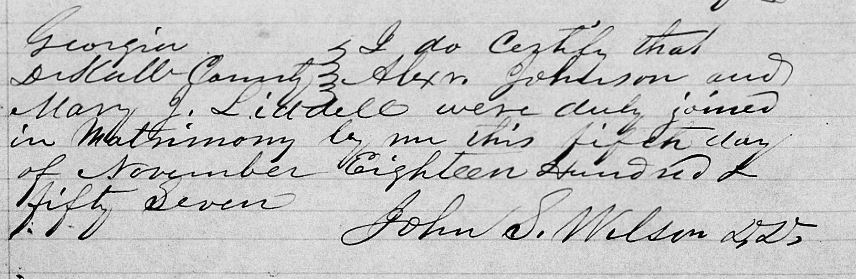 Georgia } I do Certify that
DeKalb County } Alexr. Johnson and
Mary J. Liddell were duly joined
in Matrimony by me this fifth day
of November Eighteen Hundred &
fifty Seven
John S. Wilson D.D.